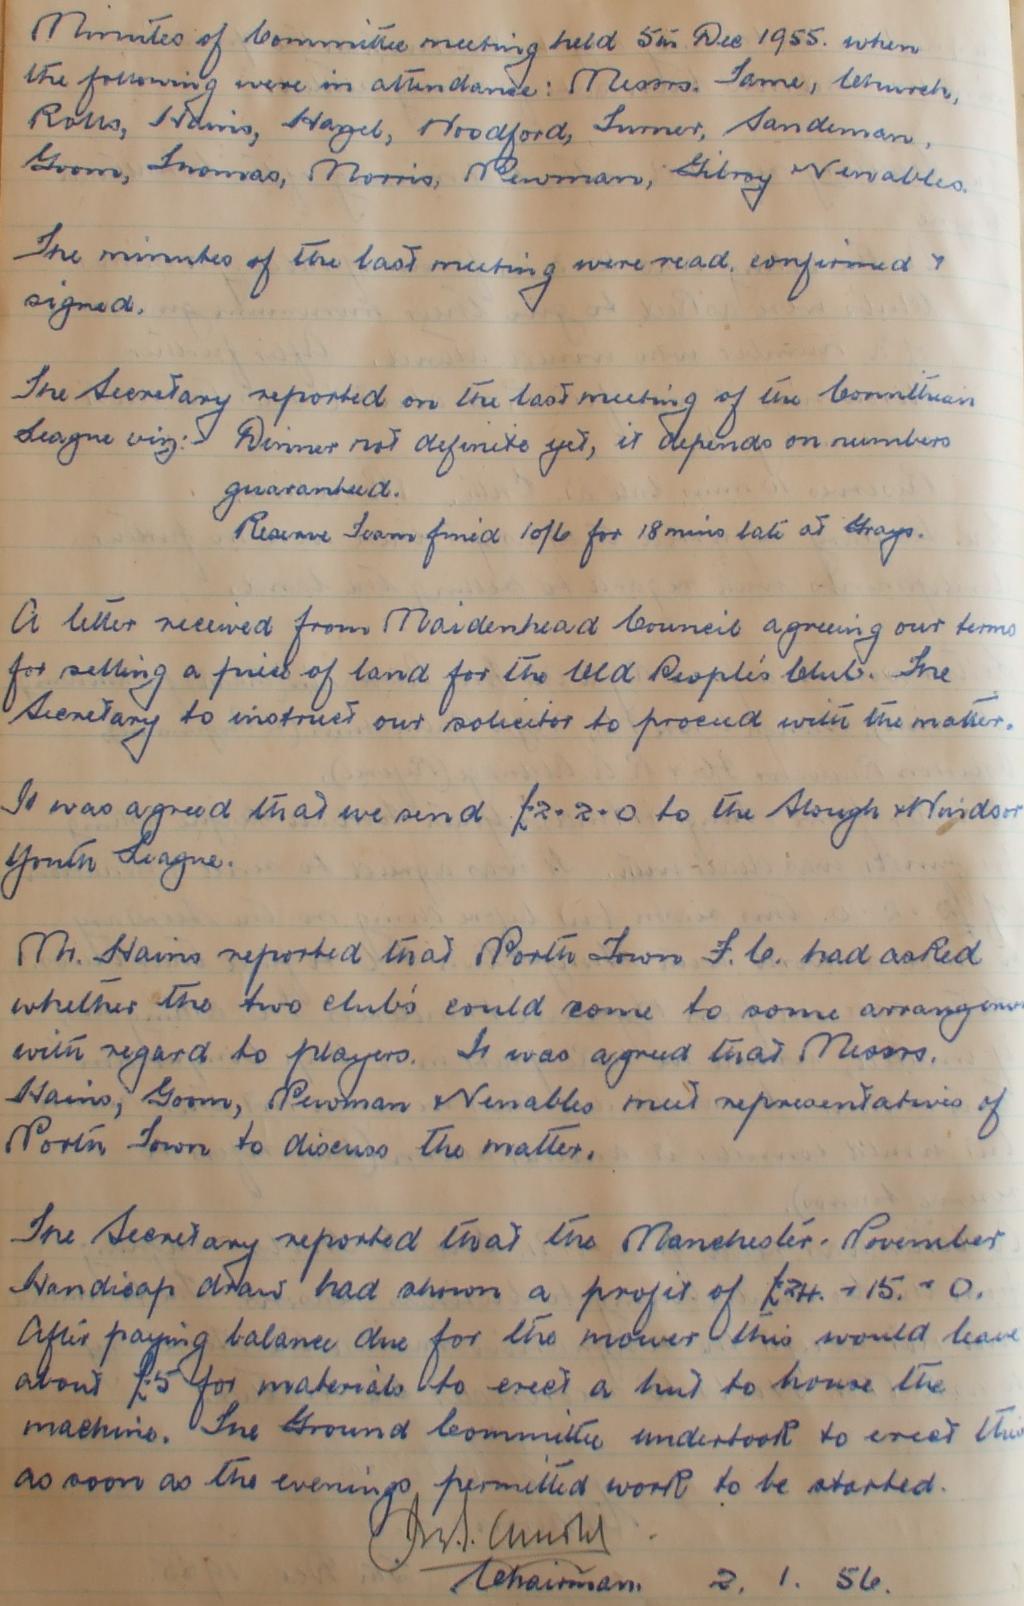 Minutes of Committee meeting held 5th Dec 1955. when
the following were in attendance: Messrs. Tame, Church,
Rolls, Hains, Hazel, Woodford, Turner, Sandeman,
Groom, Thomas, Morris, Newman, Gilroy & Venables.
The minutes of the last meeting were read, confirmed &
signed.
The Secretary reported on the last meeting of the Corinthian
League viz:- Dinner not definite yet, it depends on numbers
guaranteed.
Reserve Team fined 10/6 for 18 mins late at Grays.
A letter received from Maidenhead Council agreeing our terms
for selling a piece of land for the Old People's Club. The
Secretary to instruct our solicitor to proceed with the matter.
It was agreed that we send £2-2-0 to the Slough & Windsor
Youth League.
Mr. Hains reported that North Town F.C. had asked
whether the two club's could come to some arrangeme
with regard to players. It was agreed that Messrs.
Hains, Groom, Newman & Venables meet representatives of
North Town to discuss the matter.
The Secretary reported that the Manchester-November
Handicap draw had shown a profit of £24.-15.-0.
After paying balance due for the mower this would leave
about £5 for materials to erect a hut to house the
machine. The Ground Committee undertook to erect this
as soon as the evenings permitted work to be started.
Chairman. 2. 1. 56.